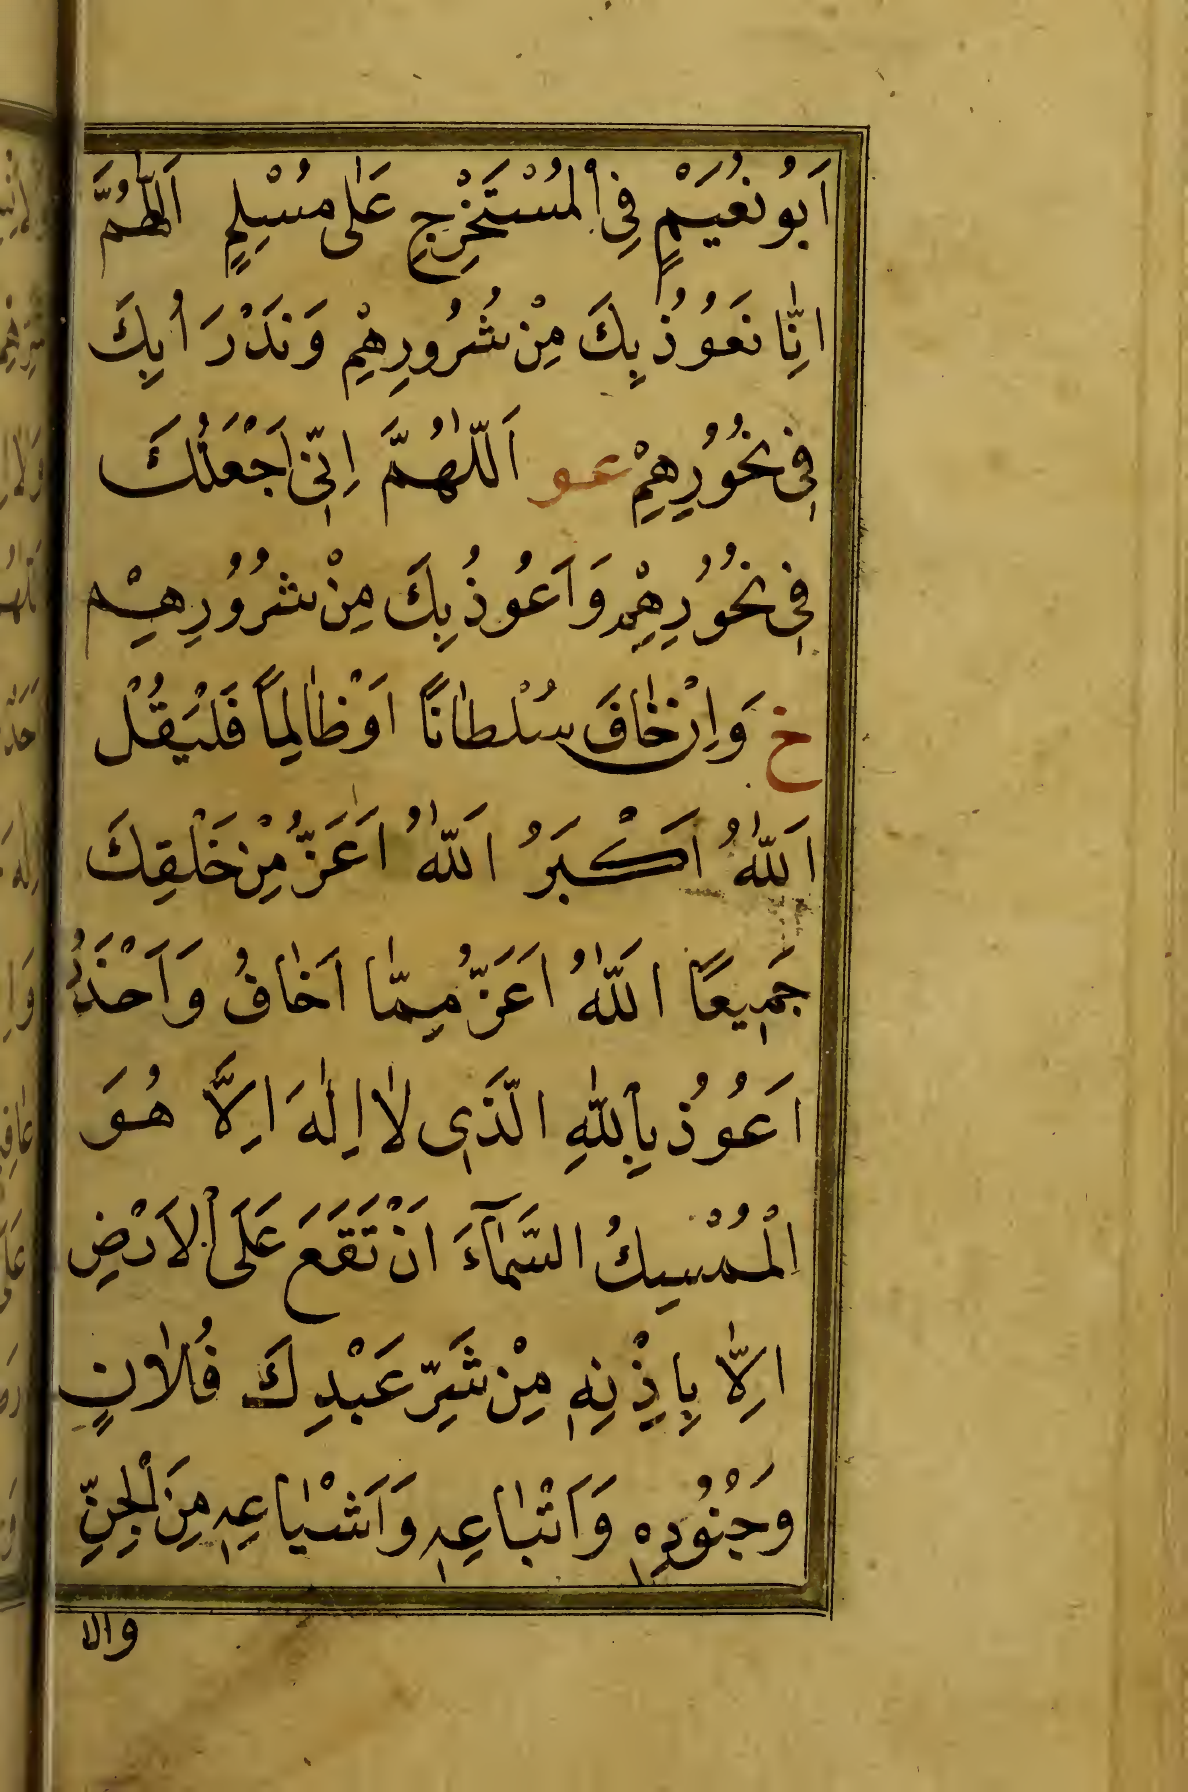 اَبُو نُعَيْمٍ فِي الْمُسْتَخْرَجِ عَلٰى مُسْلِمٍ اَللّٰهُمَّ
اِنَّا نَعُوذُ بِكَ مِنْ شُرُورِهِمْ وَنَدْرَاُ بِكَ
فِي نُحُورِهِمْ عو اَللّٰهُمَّ اِنِّي اَجْعَلُكَ
فِي نُحُورِهِمْ وَاَعُوذُ بِكَ مِنْ شُرُورِهِمْ
خ وَاِنْ خَافَ سُلْطَانًا اَوْ ظَالِمًا فَلْيَقُلْ
اَللّٰهُ اَكْبَرُ اَللّٰهُ اَعَزُّ مِنْ خَلْقِكَ
جَمِيعًا اَللّٰهُ اَعَزُّ مِمَّا اَخَافُ وَاَحْذَرُ
اَعُوذُ بِاللّٰهِ الَّذِي لَا اِلٰهَ اِلَّا هُوَ
الْمُمْسِكُ السَّمَآءَ اَنْ تَقَعَ عَلَى الْاَرْضِ
اِلَّا بِاِذْنِهِ مِنْ شَرِّ عَبْدِكَ فُلَانٍ
وَجُنُودِهِ وَاَتْبَاعِهِ وَاَشْيَاعِهِ مِنَ الْجِنِّ
والا